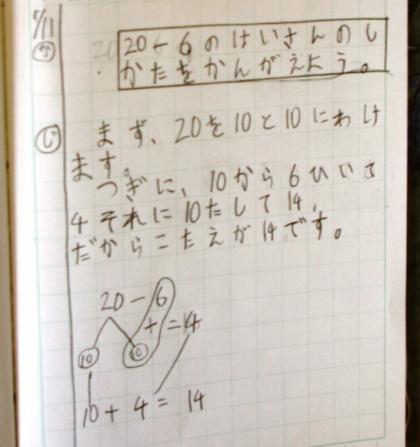 7/11
20-6のけいさんのし
かたをかんがえよう。
じ
まず、20を10と10にわけ
ます。
つぎに、10から6ひいて
4それに10たして14.
だからこたえが14です。
20-6
10 10 + = 4
10 + 4 = 14